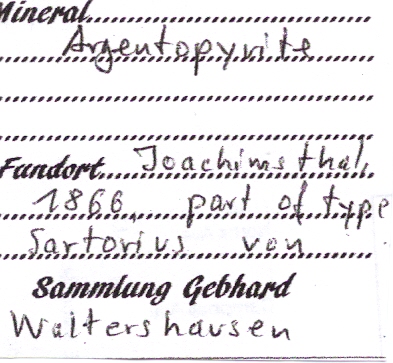 Mineral
Argentopyrite
Fundort Joachimsthal,
1866, part of type
Sartorius von
Sammlung Gebhard
Waltershausen